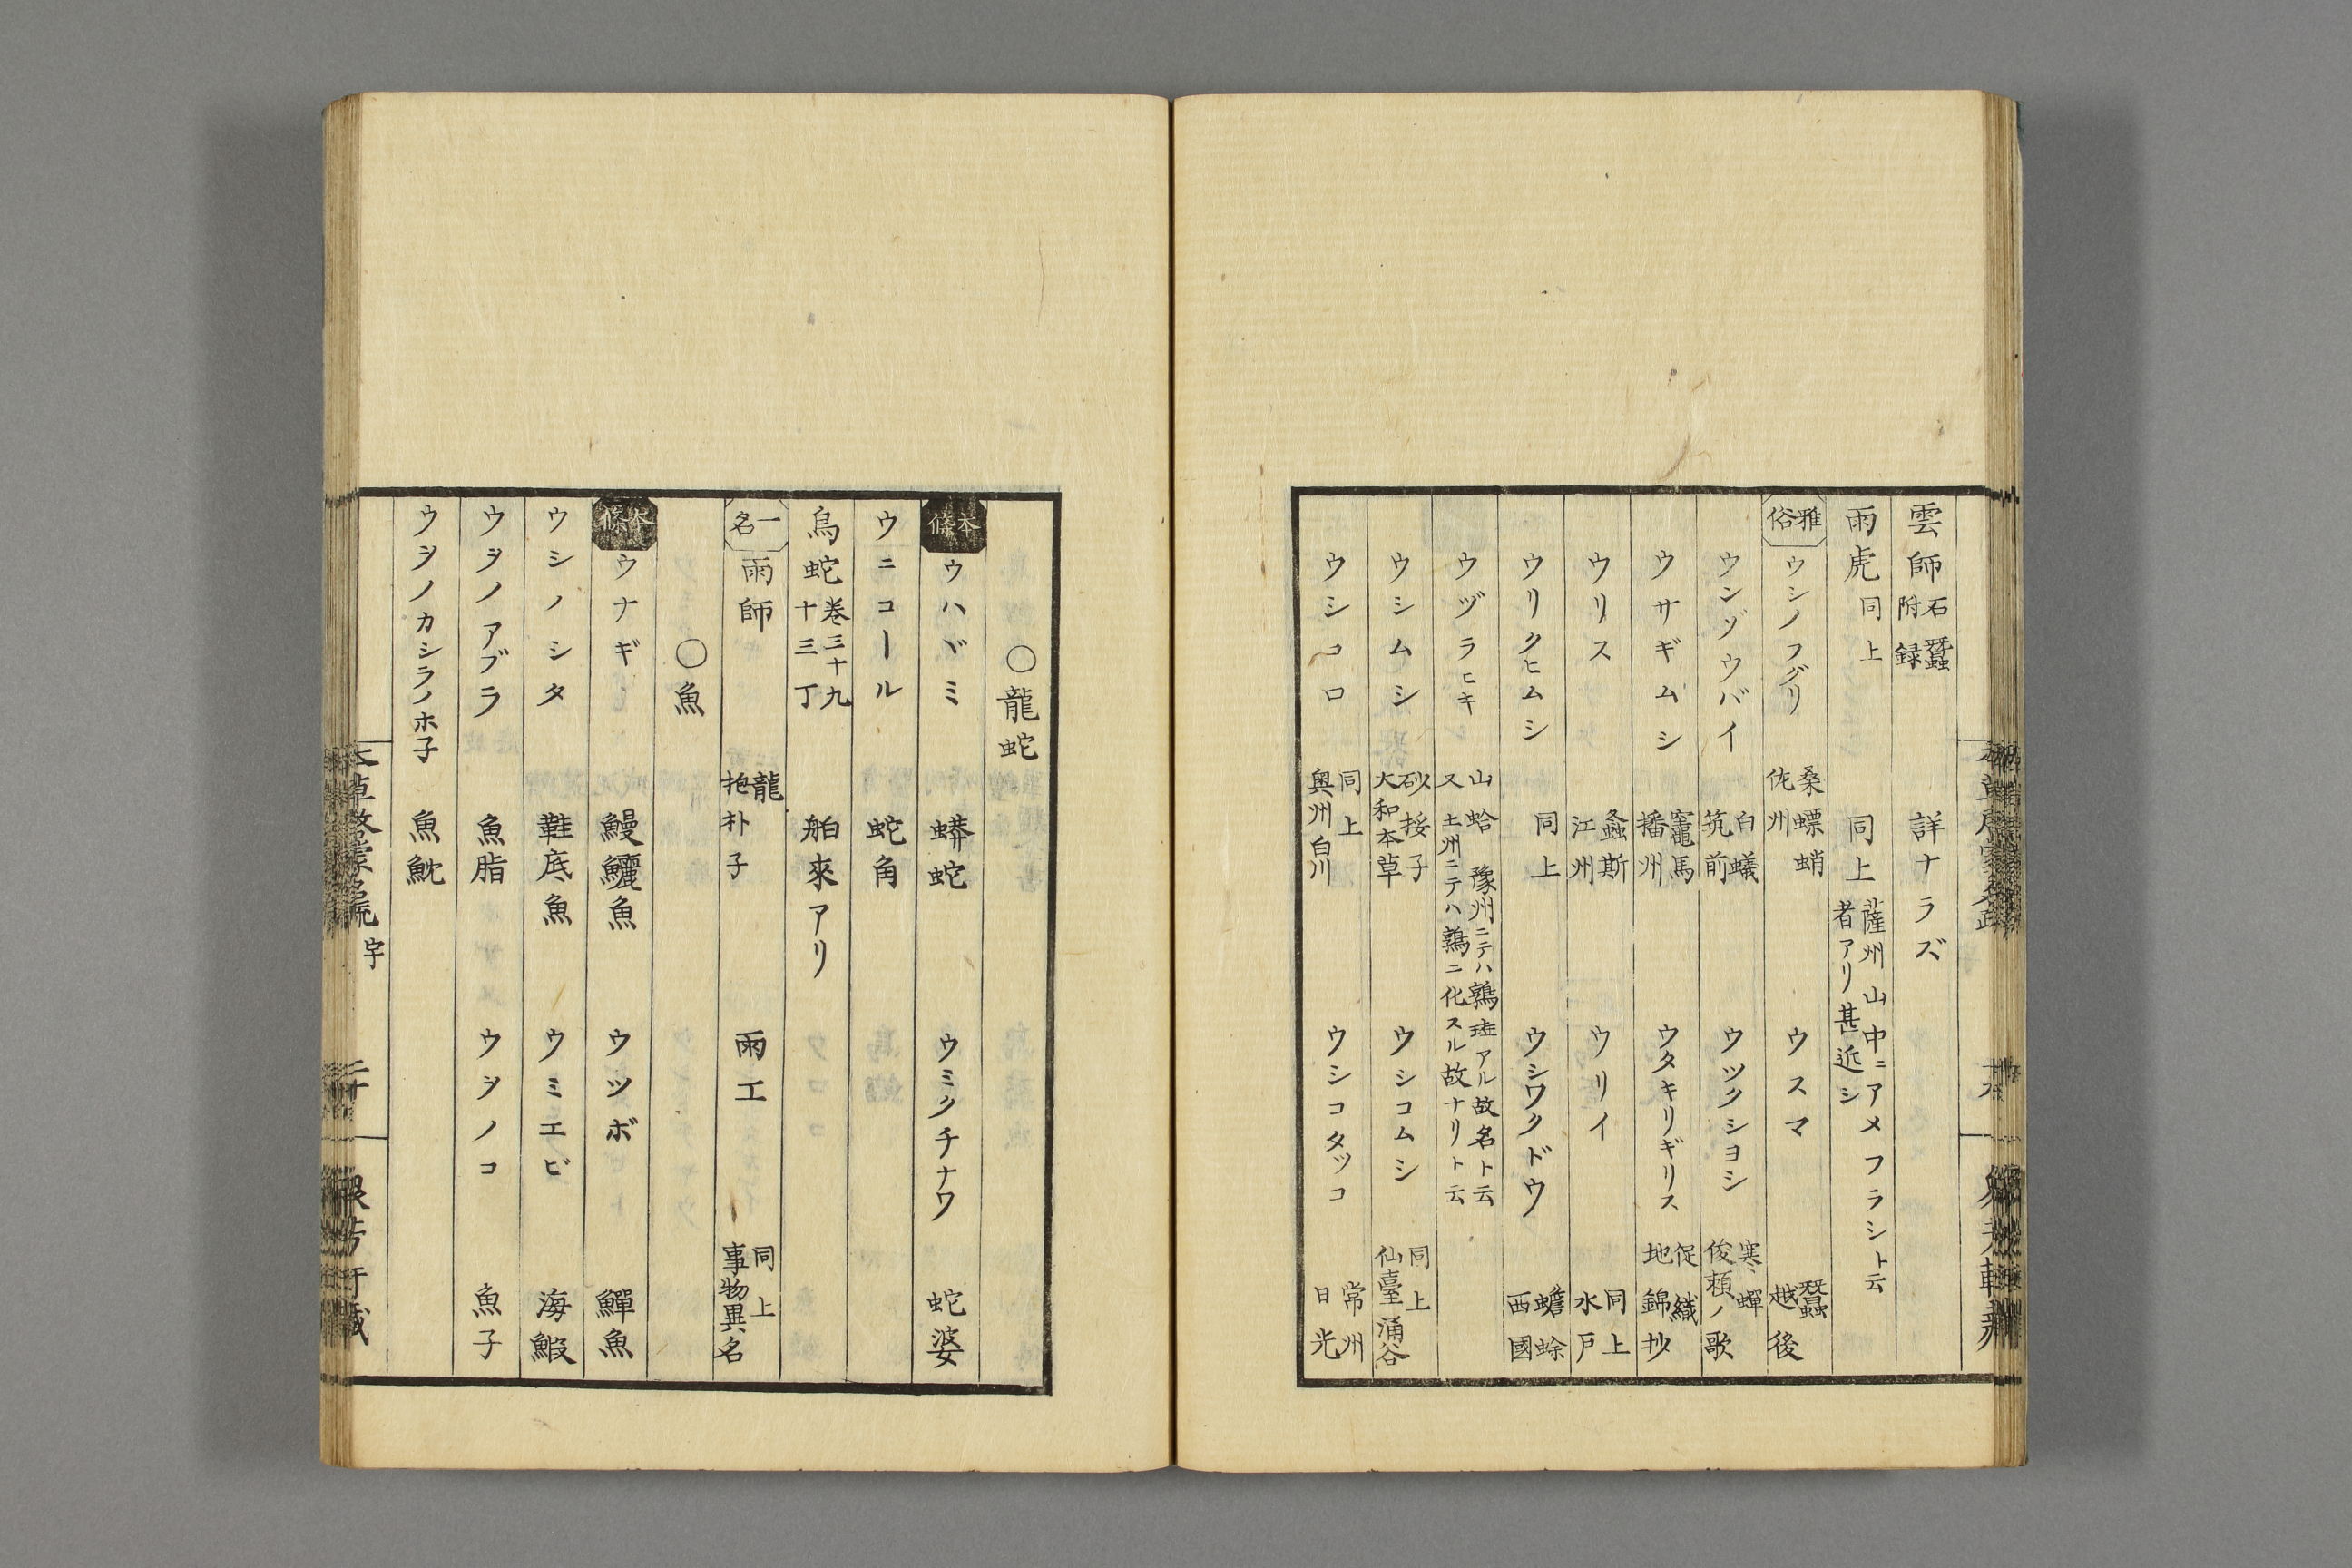 雲師 石蠶附録 詳ナラズ
雨虎 同上 同上 薩州山中ニアメフラシト云者アリ甚近シ
雅俗 ウシノフグリ 桑螵蛸 佐州 ウスマ 蠶 越後
ウンゾウバイ 白蟻 筑前 ウツクシヨシ 寒蟬 俊頼ノ歌
ウサギムシ 竈馬 播州 ウタキリギリス 促織 地錦抄
ウリス 螽斯 江州 ウリイ 同上 水戸
ウリクヒムシ 同上 ウシワクドウ 蟾蜍 西國
ウヅラヒキ 山蛤 豫州ニテハ鶉斑アル故名ト云又土州ニテハ鶉ニ化スル故ナリト云
ウシムシ 砂挼子 大和本草 ウシコムシ 同上 仙臺涌谷
ウシコロ 同上 奥州白川 ウシコタツコ 常州日光
〇龍蛇
本條 ウハヾミ 蟒蛇 ウミクチナワ 蛇婆
ウニコール 蛇角
烏蛇 巻三十九十三丁 舶來アリ
一名 雨師 龍 抱朴子 雨工 同上 事物異名
〇魚
本條 ウナギ 鰻鱺魚 ウツボ 鱓魚
ウシノシタ 鞋底魚 ウミエビ 海鰕
ウヲノアブラ 魚脂 ウヲノコ 魚子
ウヲノカシラノホ子 魚魫
本草啓蒙名疏 宇 二十